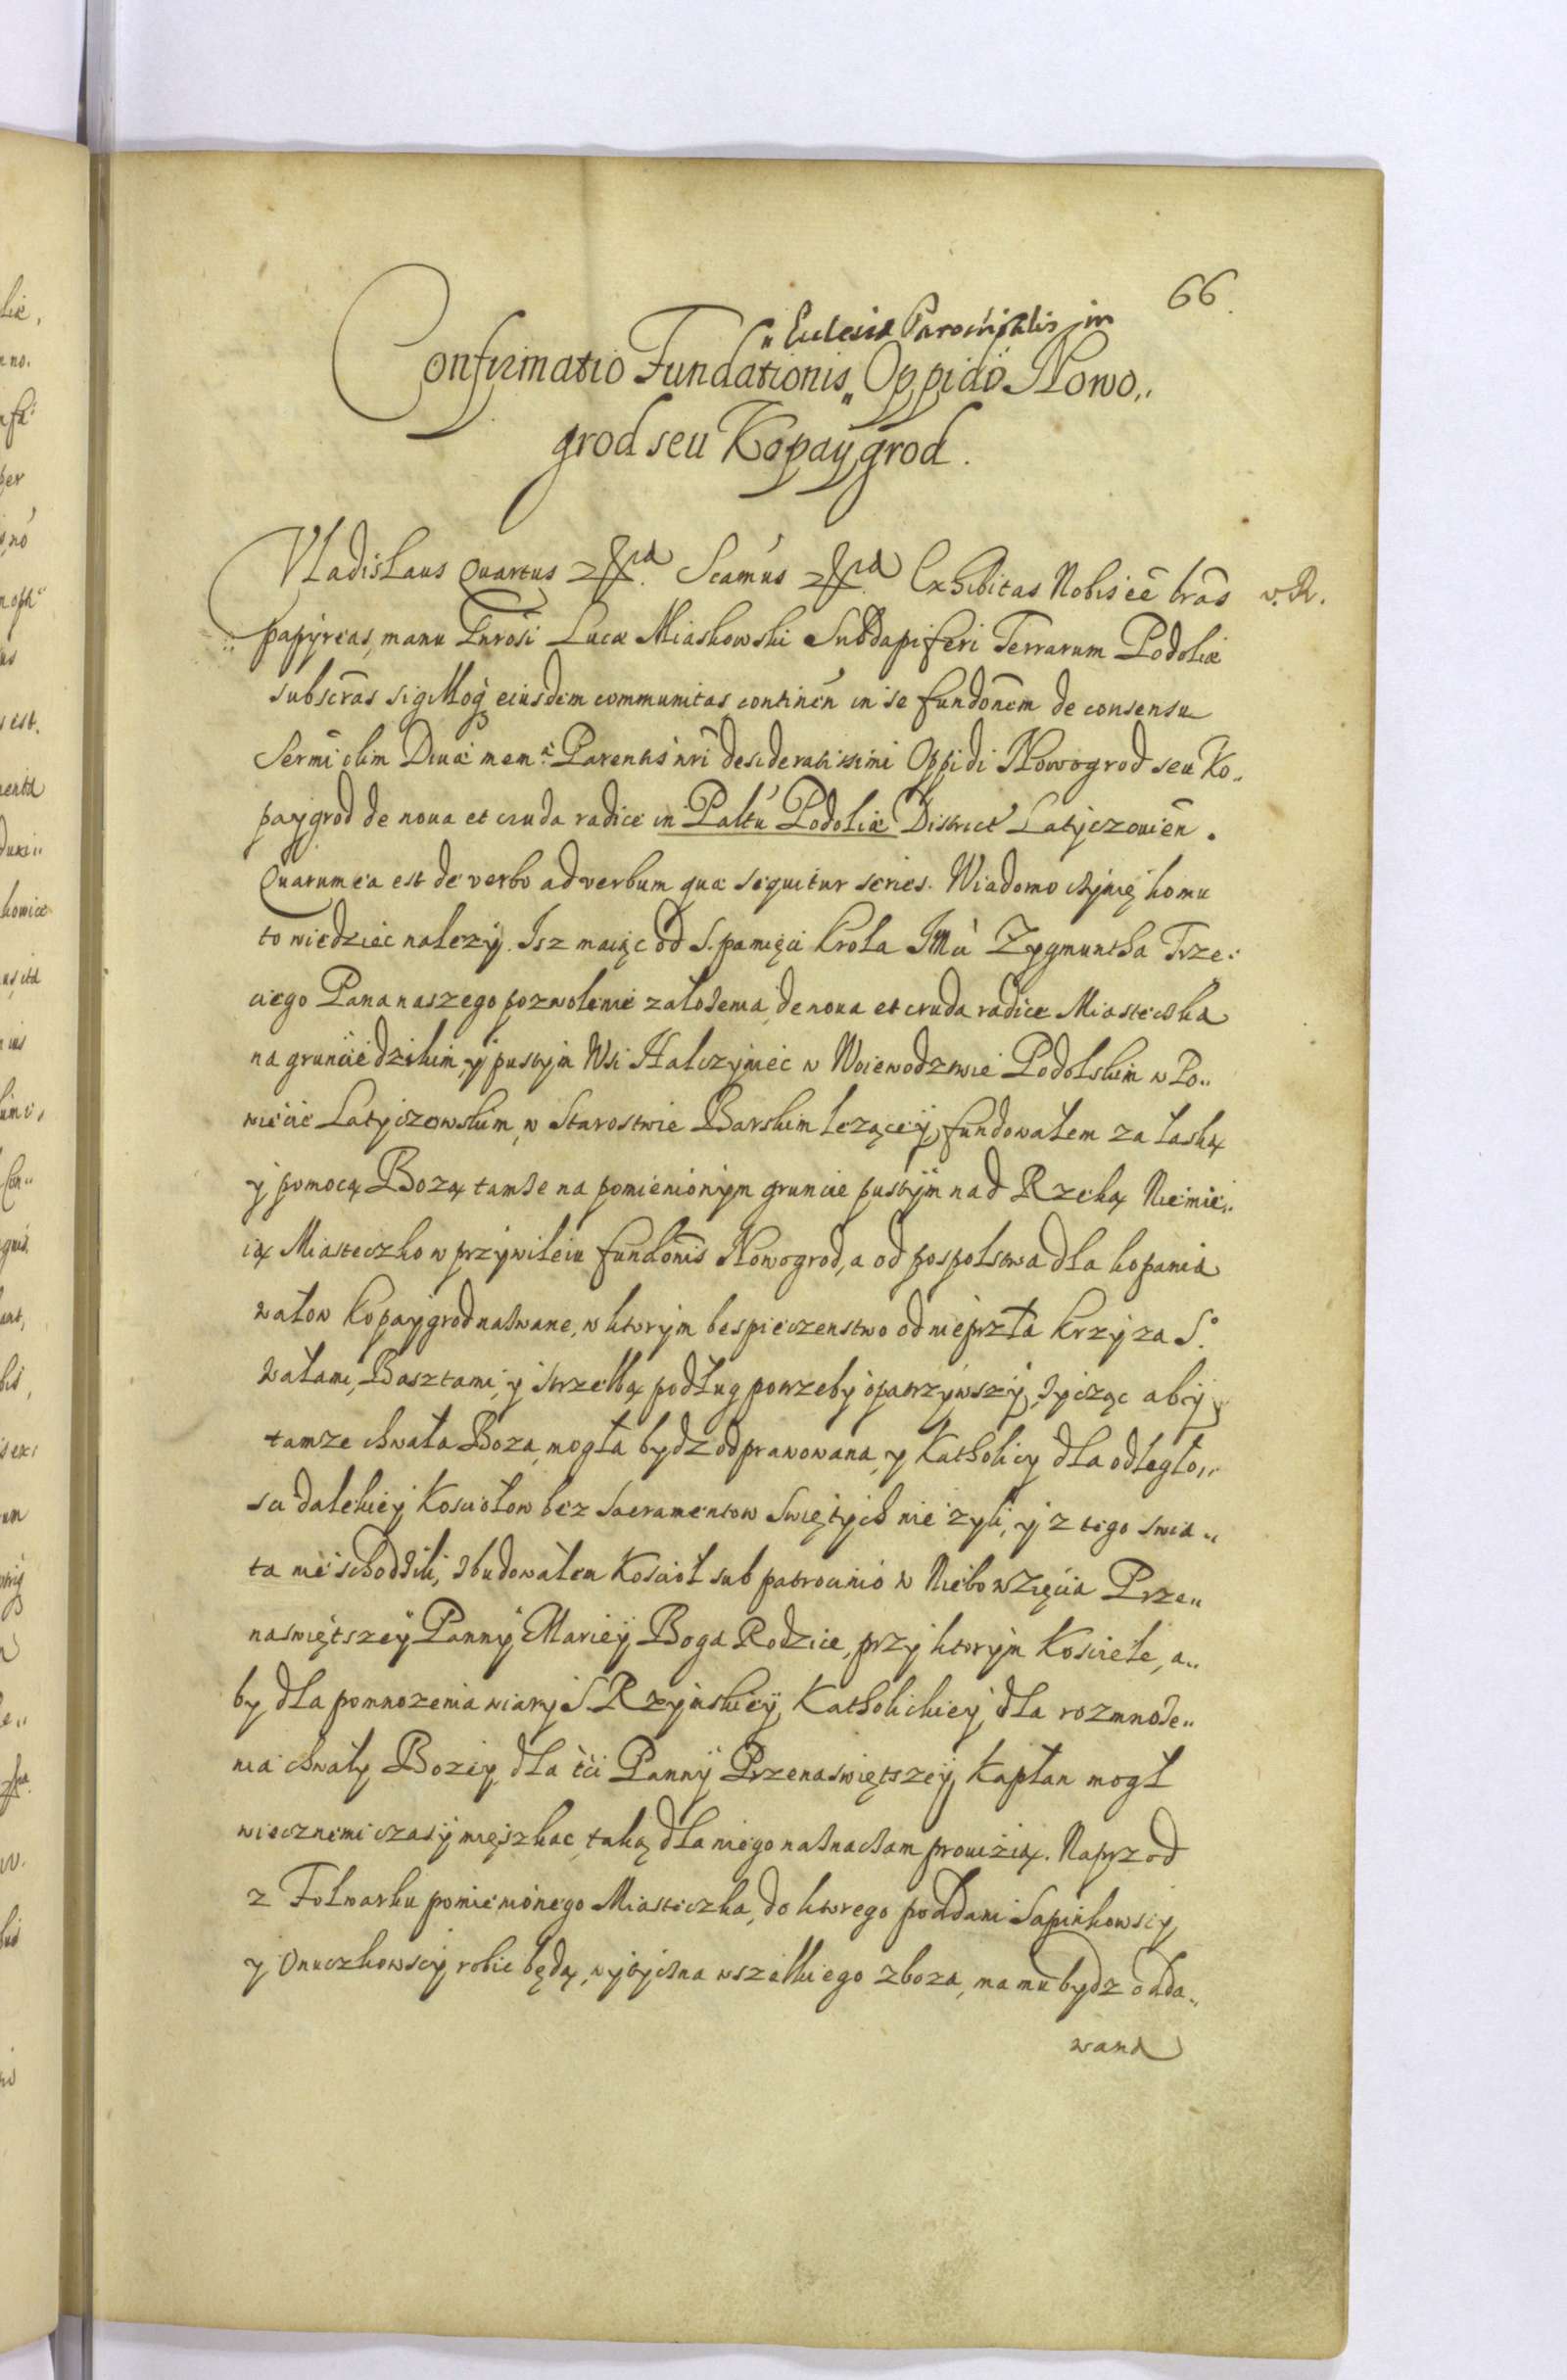 66.
„ Eclesiæ Parochialis in
Confirmatio Fundationis „ Oppidō Nowo„
grod seu Kopaygrod.
Vladislaus Quartus Scamus Exhibitas Nobis eē lrās v. R.
papyreas, manu Gnrosi Lucæ Miaskowski Subdapiferi Terrarum Podoliæ
subscrās sigilloq eiusdem communitas, continen in se fundonem de consensu
Sermi olim Diuæ mem. Parentis nri desideratissimi Oppidi Nowogrod seu Ko„
paygrod de noua et cruda radice in Paltu Podoliæ District Latyczouien.
Quarum ea est de verbo ad verbum quæ sequitur series. Wiadomo czynię komu
to wiedziec nalezy. Isz maiąc od S. pamięci Krola JMci Zygmuntha Trze„
ciego Pana naszego pozwolenie założenia, de noua et cruda radice Miasteczka
na gruncie dzikim, y pustym Wsi Halczyniec w Woiewodztwie Podolskim w Po„
wiecie Latyczowskim, w Starostwie Barskim lezącey, fundowałem za łaską
y pomocą Bozą tamże na pomienionym gruncie pustym nad Rzeką Niemie„
ią Miasteczko w przywileiu fundonis Nowogrod, a od pospolstwa dla kopania
wałow Kopaygrod nazwane, w ktorym bespieczenstwo od nieprzła Krzyza S.
Wałami, Basztami, y strzelbą podług potrzeby opatrzywszy, życząc aby
tamze chwała Boza, mogła bydz odprawowana, y Katholicy dla odległo„
sci dalekiey Kosciołow bez Sacramentow Swiętych nie zyli, y z tego swia„
ta nie schodzili, zbudowałem Kosciół sub patrocinio w Niebowzięcia Prze„
naswiętszey Panny Mariey Boga Rodzice, przy ktorym Kosciele, a„
by dla pomnozenia wiary S. Rzymskiey, Katholickiey, dla rozmnoże„
nia chwały Bozey, dla tci Panny Przenaswiętszey, Kapłan mogł
wiecznemi czasy mięszkac, taką dla niego naznaczam prouizią. Naprzod
z Folwarku pomienionego Miasteczka, do ktorego poddani Sapinkowscy,
y Onuczkowscy robic będą, wytyczna wszelkiego zboza, ma mu bydz odda„
wana